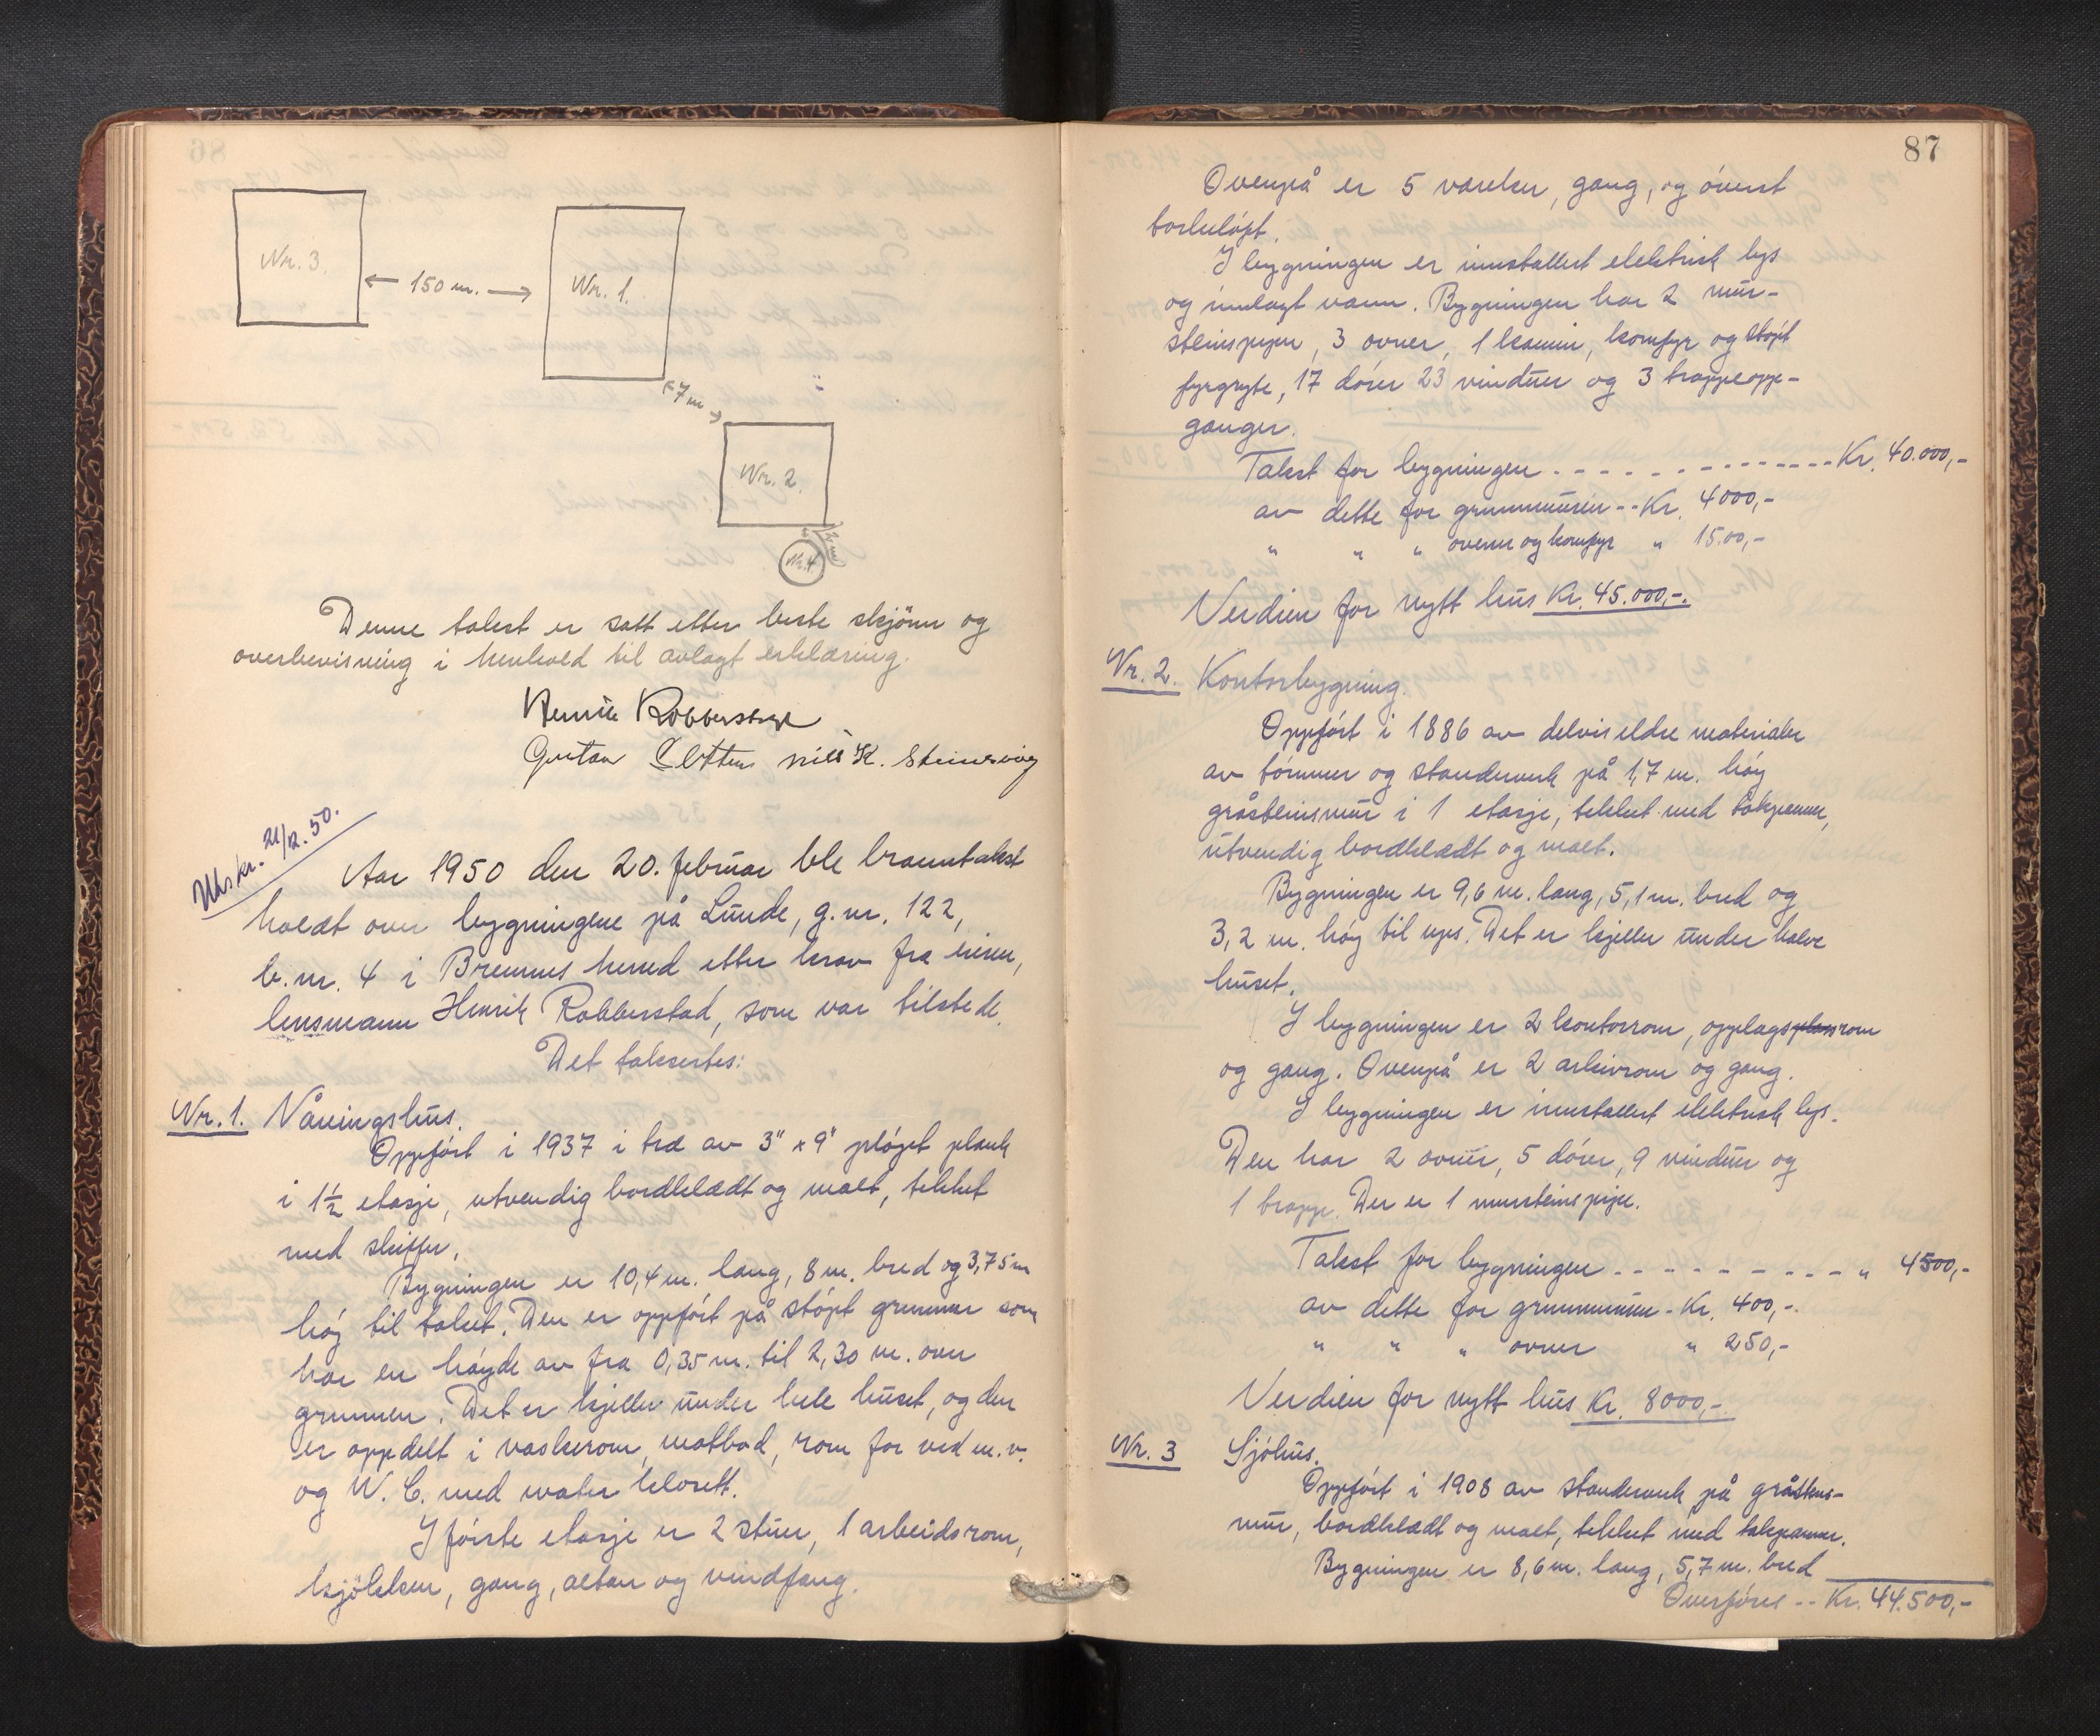 Nr. 3.
← 150 m. →
Nr. 1.
7 m
Nr. 2.
Nr. 4
Denne takst er satt etter beste skjönn og
overbevisning i henhold til avlagt erklæring.
Henrik Robberstad
Gustav Sletten Nils K. Steinsvåg
Utskr. 21/12. 50.
Aar 1950 den 20. februar ble branntakst
holdt over bygningene på Lunde, g.nr. 122,
b.nr. 4 i Bremnes herred etter krav fra eieren,
lensmann Henrik Robberstad, som var tilstede.
Det takseertes:
Nr. 1. Våningshus.
Oppfört i 1937 i tre av 3" x 9" plöjet plank
i 1½ etasje, utvendig bordklædt og malt, tekket
med skiffer.
Bygningen er 10,4 m. lang, 8 m. bred og 3,75 m
höy til taket. Den er oppfört på stöpt grunnmur som
har en höyde av fra 0,35 m. til 2,30 m. over
grunnen. Det er kjeller under hele huset, og den
er oppdelt i vaskerom, matbod, rom for ved m.v.
og W.C. med water klosett.
I förste etasje er 2 stuer, 1 arbeidsrom,
kjökken, gang, altan og vindfang.
87
Ovenpå er 5 værelser, gang, og överst
törkeloft.
I bygningen er innstallert elektrisk lys
og innlagt vann. Bygningen har 2 mur-
steinspiper, 3 ovner, 1 kamin, komfyr og stöpt
fyrgryte, 17 dörer 23 vinduer og 3 trappeopp-
ganger.
Takst for bygningen - - - - - - - - - - - - - - Kr. 40.000,-
av dette for grunnmuren - - Kr. 4000,-
" " " ovner og komfyr " 1500,-
Verdien for nytt hus Kr. 45.000,-.
Nr. 2. Kontorbygning.
Oppfört i 1886 av delvis eldre materialer
av tömmer og standerverk på 1,7 m. höy
gråsteinsmur i 1 etasje, tekket med takpanner,
utvendig bordklædt og malt.
Bygningen er 9,6 m. lang, 5,1 m. bred og
3,2 m. höy til ups. Det er kjeller under halve
huset.
I bygningen er 2 kontorrom, opplagsplassrom
og gang. Ovenpå er 2 arkivrom og gang.
I bygningen er innstallert elektrisk lys.
Den har 2 ovner, 5 dörer, 9 vinduer og
1 trapp. Der er 1 mursteinspipe.
Takst for bygningen - - - - - - - - - - " 4500,-
av dette for grunnmuren - Kr. 400,-.
" " " ovner " 250,-
Verdien for nytt hus Kr. 8000,-
Nr. 3 Sjöhus.
Oppfört i 1908 av standerverk på gråstens-
mur, bordklædt og malt, tekket med takpanner.
Bygningen er 8,6 m. lang, 5,7 m. bred
Overföres - - Kr. 44.500,-